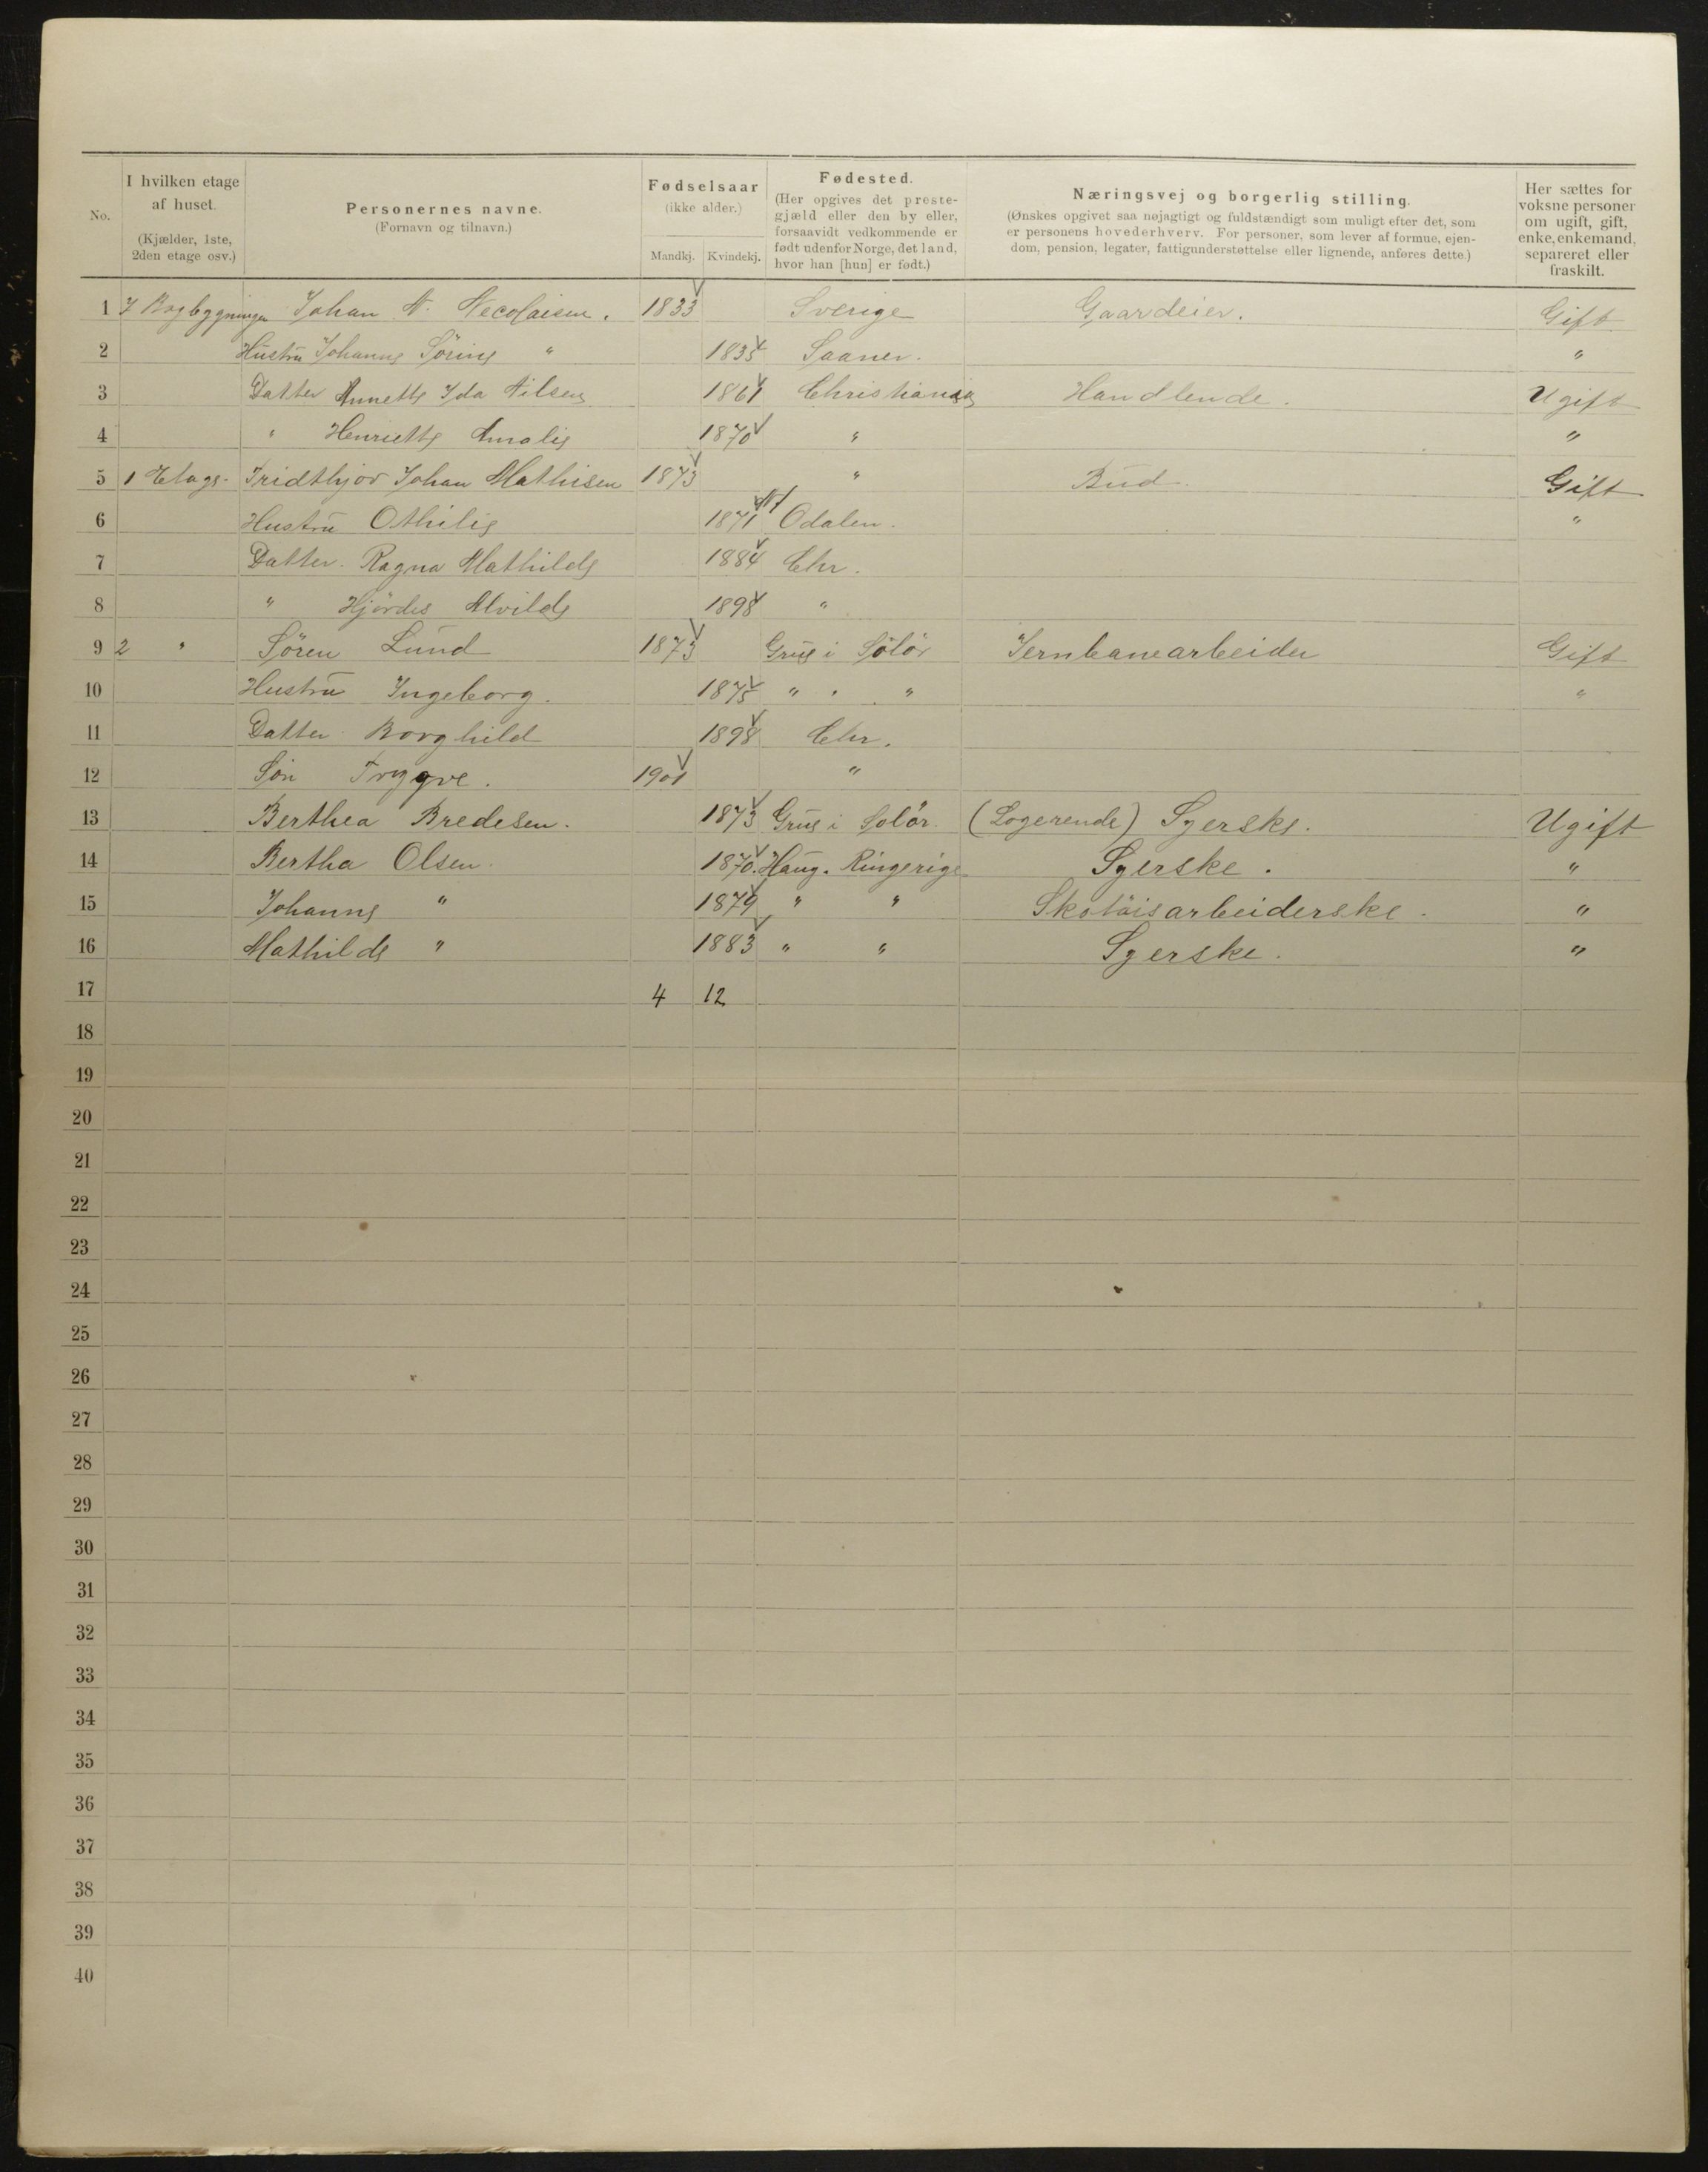 I hvilken etage af huset. (Kjælder, 1ste, 2den etage osv.)
No.
Personernes navne. (Fornavn og tilnavn.)
Fødselsaar (ikke alder.) Mandkj. Kvindekj.
Fødested. (Her opgives det prestegjæld eller den by eller, forsaavidt vedkommende er født udenfor Norge, det land, hvor han [hun] er født.)
Næringsvej og borgerlig stilling. (Ønskes opgivet saa nøjagtigt og fuldstændigt som muligt efter det, som er personens hovederhverv. For personer, som lever af formue, ejendom, pension, legater, fattigunderstøttelse eller lignende, anføres dette.)
Her sættes for voksne personer om ugift, gift, enke, enkemand, separeret eller fraskilt.
1 I Bagbygningen Johan N. Necolaisen. 1833 Sverige Gaardeier. Gift
2 Hustru Johanne Sørine " 1835 Saaner. "
3 Datter Annette Ida Nilsen 1861 Christiania Handlende. Ugift
4 " Henriette Amalie 1870 " "
5 1 Etage. Fridthjov Johan Mathisen 1873 " Bud. Gift
6 Hustru Othilie 1871 Odalen. "
7 Datter. Ragna Mathilde 1884 Chr.
8 " Hjördes Alvilde 1898 "
9 2 " Sören Lund 1873 Grue i Solör Jernbanearbeider Gift
10 Hustru Ingeborg. 1875 " " " "
11 Datter Borghild 1898 Chr.
12 Søn Trygve. 1901 "
13 Berthea Bredesen. 1873 Grue i Solør. (Logerende) Syerske. Ugift
14 Bertha Olsen. 1870. Haug. Ringerige Syerske. "
15 Johanne " 1879 " " Skotöisarbeiderske. "
16 Mathilde " 1883 " " Syerske. "
17 4 12
18
19
20
21
22
23
24
25
26
27
28
29
30
31
32
33
34
35
36
37
38
39
40